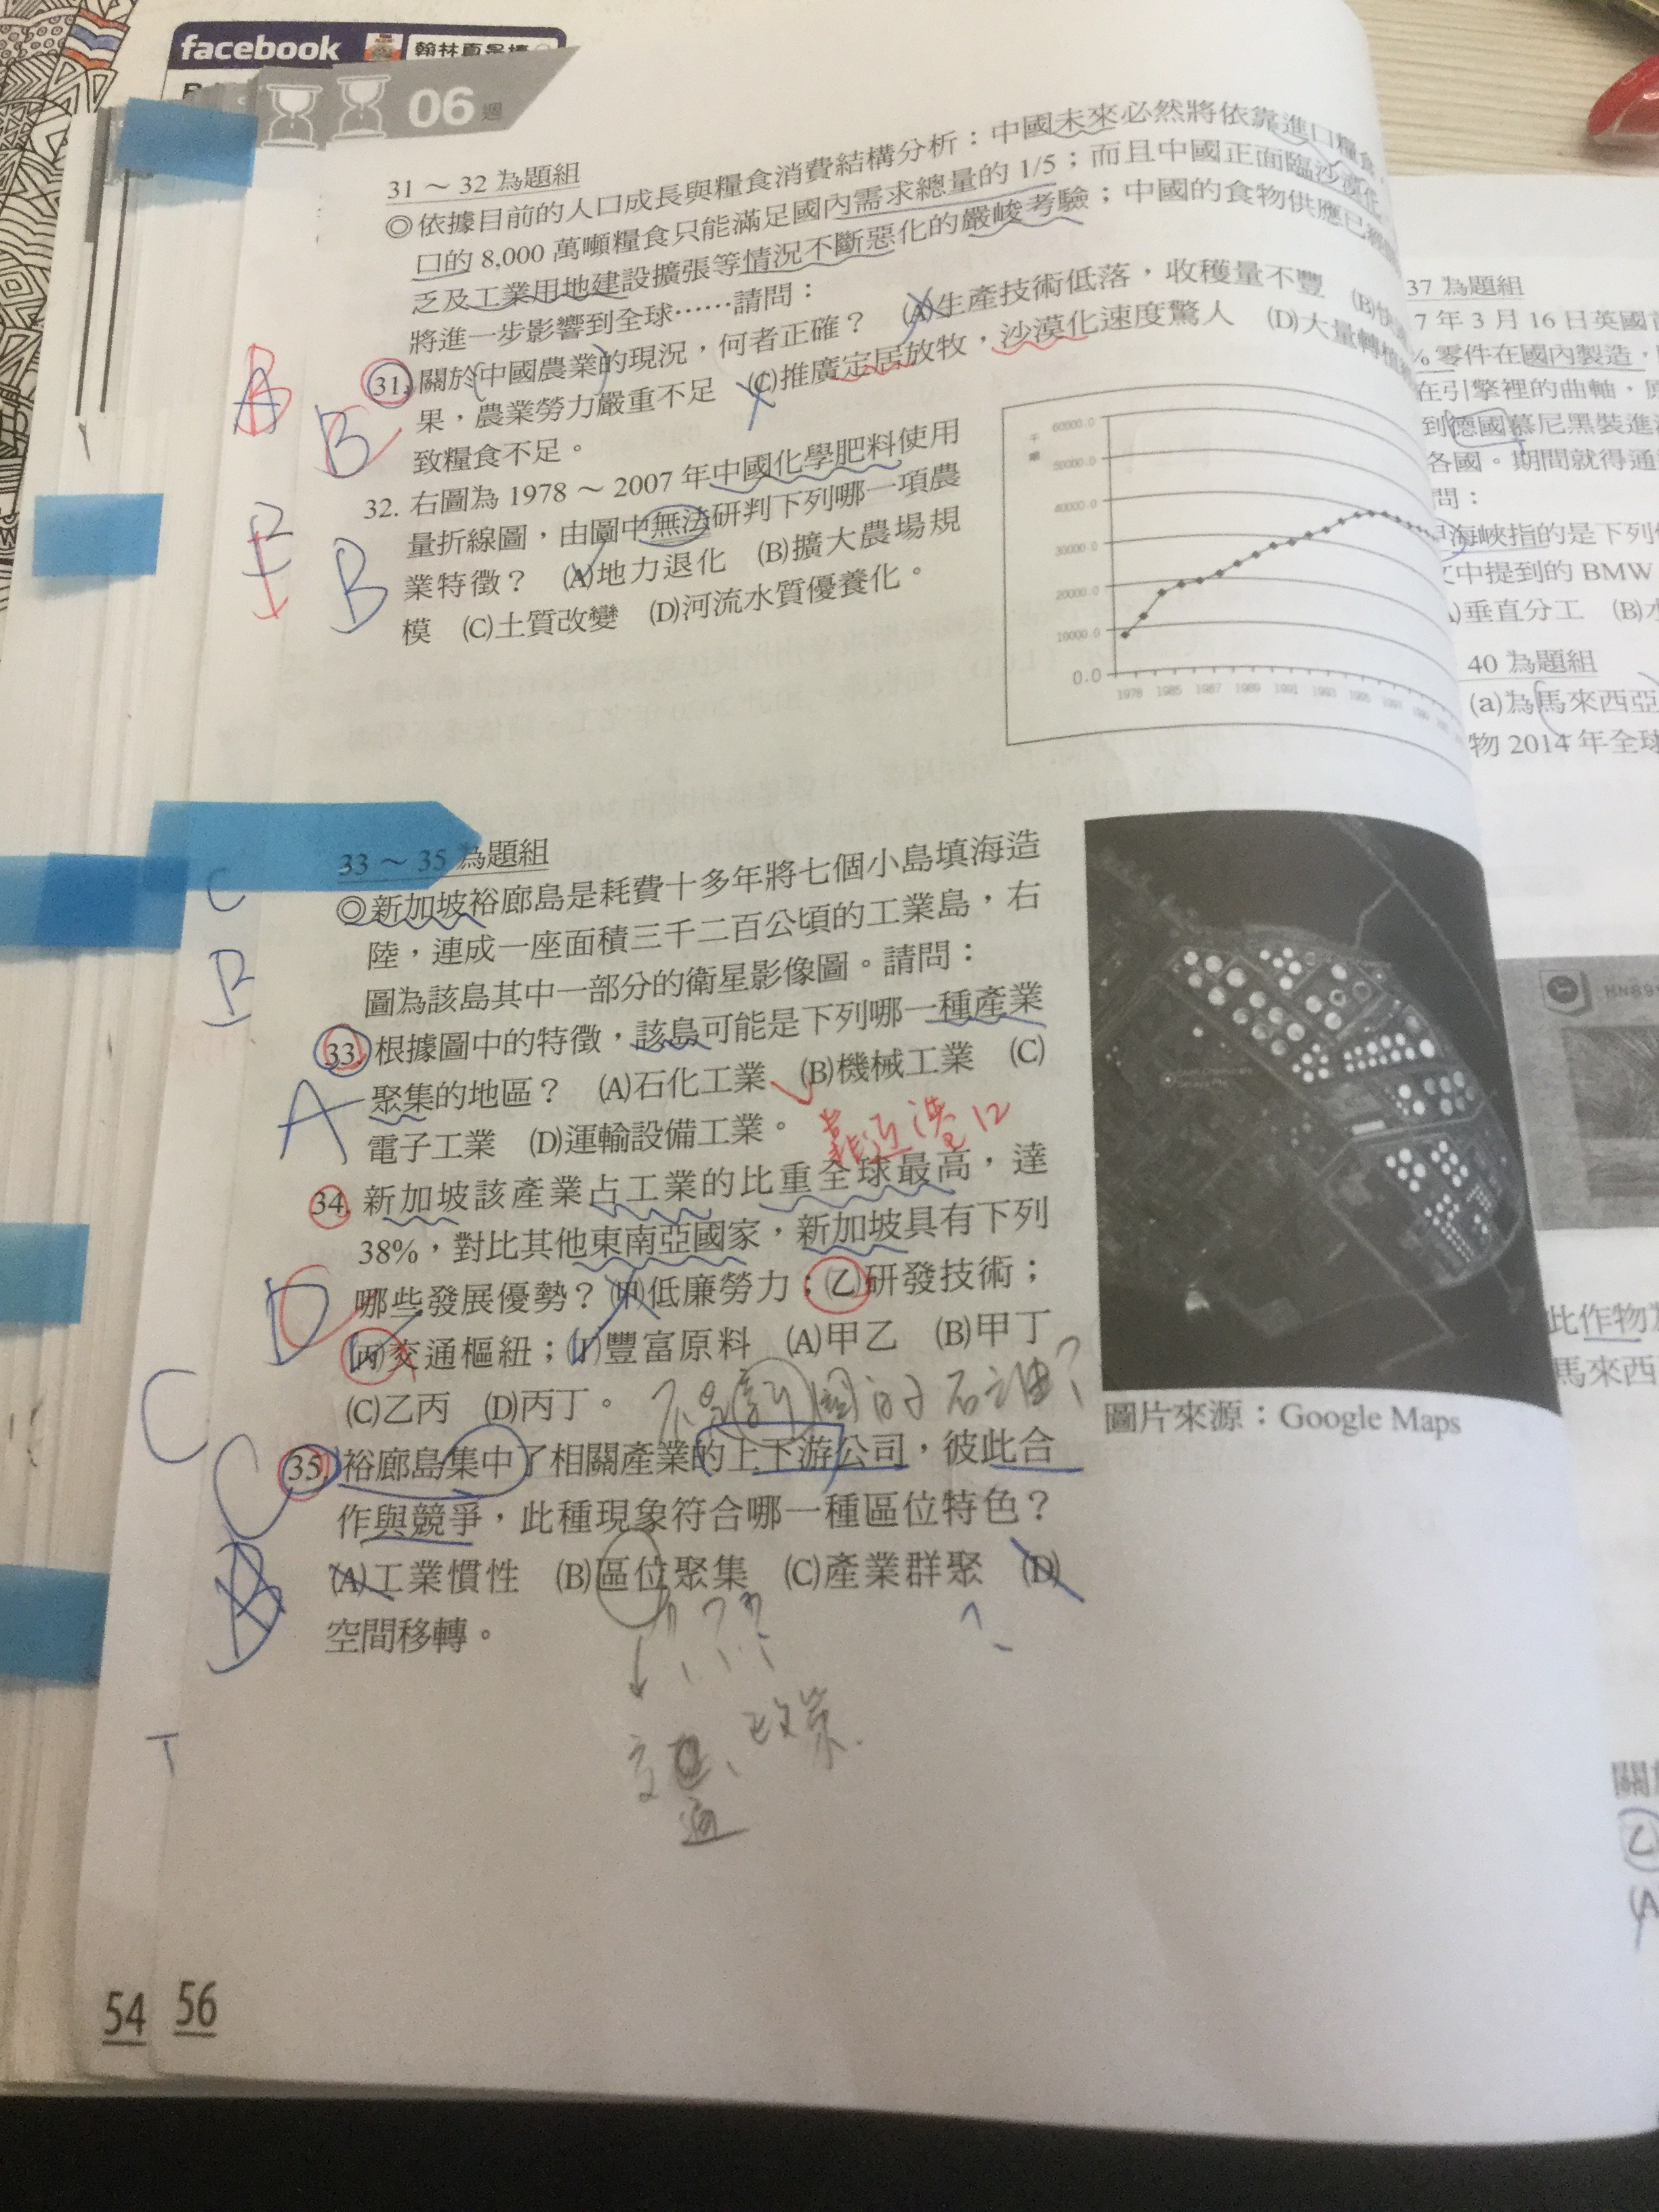 facebook
06 週
31～32 為題組
◎依據目前的人口成長與糧食消費結構分析：中國未來必然將依靠進口糧食
口的 8,000 萬噸糧食只能滿足國內需求總量的 1/5；而且中國正面臨沙漠化
乏及工業用地建設擴張等情況不斷惡化的嚴峻考驗；中國的食物供應已
將進一步影響到全球……請問：
31. 關於中國農業的現況，何者正確？ (A)生產技術低落，收穫量不豐 (B)
果，農業勞力嚴重不足 (C)推廣定居放牧，沙漠化速度驚人 (D)大量轉
致糧食不足。
B
32. 右圖為 1978～2007 年中國化學肥料使用
量折線圖，由圖中無法研判下列哪一項農
業特徵？ (A)地力退化 (B)擴大農場規
模 (C)土質改變 (D)河流水質優養化。
B
60000.0
50000.0
40000.0
30000.0
20000.0
10000.0
0.0
1978 1985 1987 1989 1991 1993 1995
33～35 為題組
◎新加坡裕廊島是耗費十多年將七個小島填海造
陸，連成一座面積三千二百公頃的工業島，右
圖為該島其中一部分的衛星影像圖。請問：
33. 根據圖中的特徵，該島可能是下列哪一種產業
聚集的地區？ (A)石化工業 (B)機械工業 (C)
電子工業 (D)運輸設備工業。
A
靠近港口
34. 新加坡該產業占工業的比重全球最高，達
38%，對比其他東南亞國家，新加坡具有下列
哪些發展優勢？(甲)低廉勞力；(乙)研發技術；
(丙)交通樞紐；(丁)豐富原料 (A)甲乙 (B)甲丁
(C)乙丙 (D)丙丁。
D
C
圖片來源：Google Maps
35. 裕廊島集中了相關產業的上下游公司，彼此合
作與競爭，此種現象符合哪一種區位特色？
(A)工業慣性 (B)區位聚集 (C)產業群聚 (D)
空間移轉。
C
B
↓
政策.
54 56
37 為題組
7 年 3 月 16 日英國
零件在國內製造，
在引擎裡的曲軸，
到德國慕尼黑裝進
各國。期間就得通
問：
海峽指的是下列
文中提到的 BMW
)垂直分工 (B)
40 為題組
(a)為馬來西亞
物 2014 年全球
此作物
馬來西